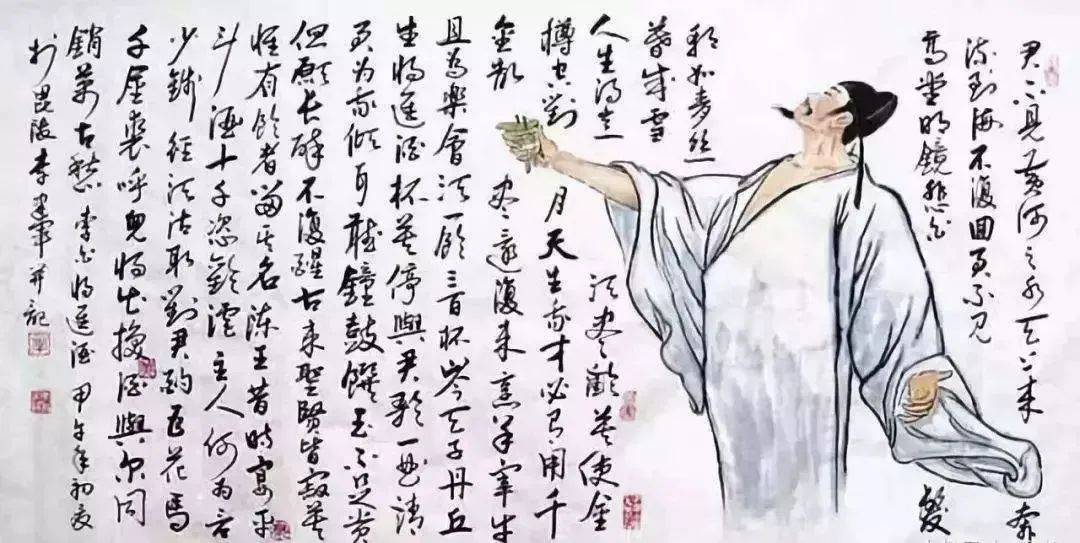 君不見黄河之水天上来奔
流到海不復回君不见
高堂明鏡悲白髮
朝如青丝
暮成雪
人生得意须尽歡莫使金
樽空對月天生我才必有用千
金散尽還復来烹羊宰牛
且為樂會须一飲三百杯岑夫子丹丘
生将進酒杯莫停與君歌一曲请
君为我倾耳聽鐘鼓饌玉不足贵
但願长醉不復醒古来聖賢皆寂莫
惟有飲者留其名陈王昔時宴平
斗酒十千恣歡谑主人何为言
少錢径须沽取對君酌五花馬
千金裘呼兒将出换酒與尔同
銷萬古愁 李白将進酒 甲午年初夏
於毘陵李軍并記